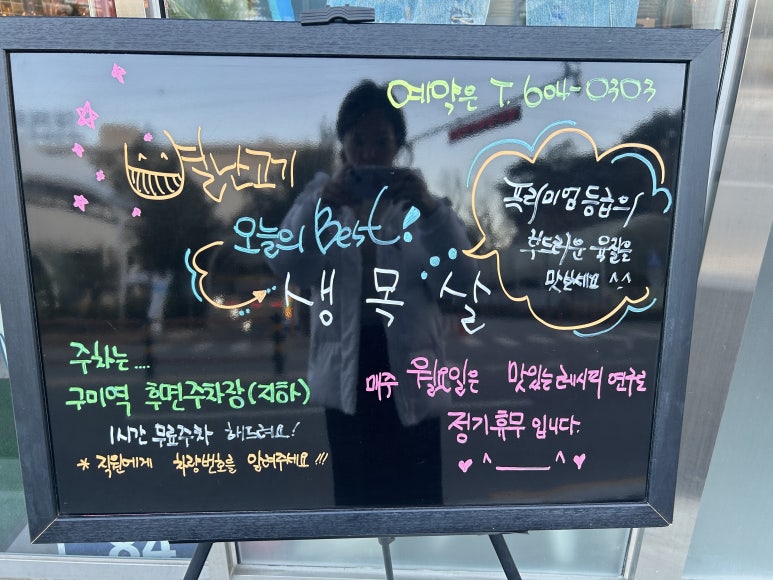 예약은 T. 604-0303
별난고기
오늘의 Best!
생 목 살
프리미엄 등급의
부드러운 육질을
맛보세요 ^^
주차는....
구미역 후면주차장(지하)
1시간 무료주차 해드려요!
* 직원에게 차량번호를 알려주세요!!!
매주 월요일은 맛있는 레시피 연구로
정기휴무 입니다.
♥ ^___^ ♥
84